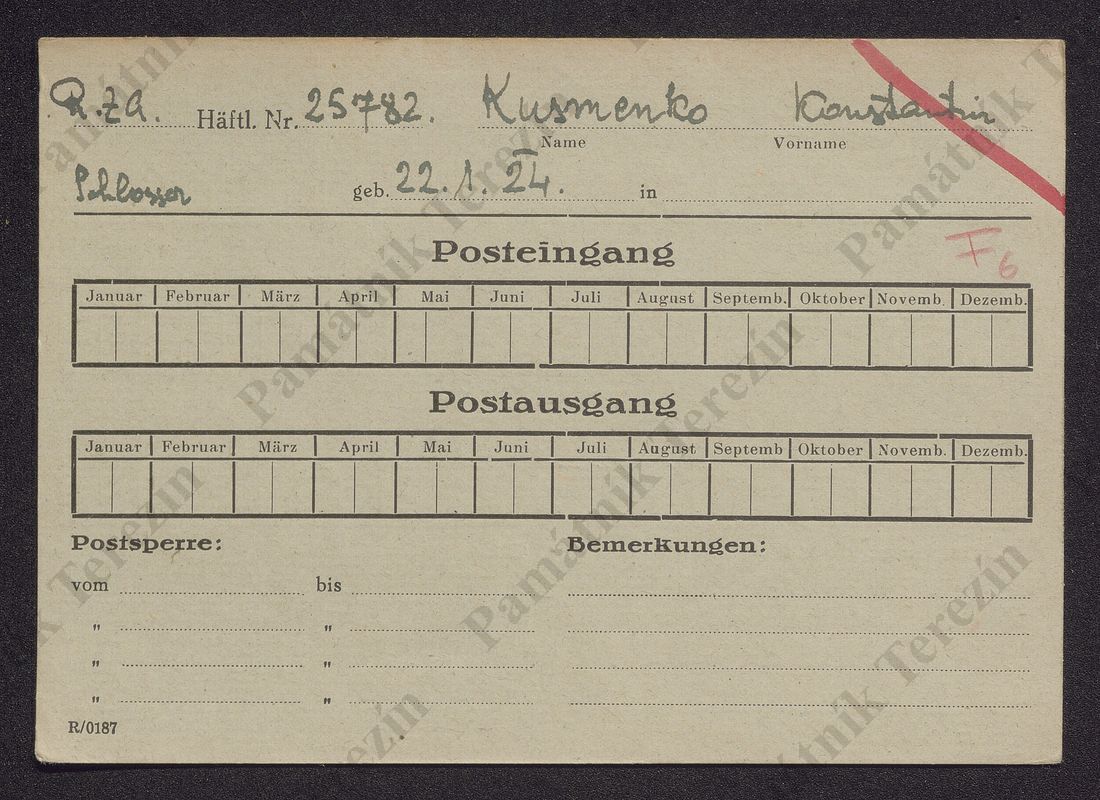 R.ZA. Häftl. Nr. 25782. Kusmenko Konstantin
Name Vorname
Schlosser geb. 22. 1. 24. in
Posteingang
F6
Januar Februar März April Mai Juni Juli August Septemb. Oktober Novemb. Dezemb.
Postausgang
Januar Februar März April Mai Juni Juli August Septemb Oktober Novemb. Dezemb.
Postsperre: Bemerkungen:
vom bis
" "
" "
" "
R/0187
Památník Terezín